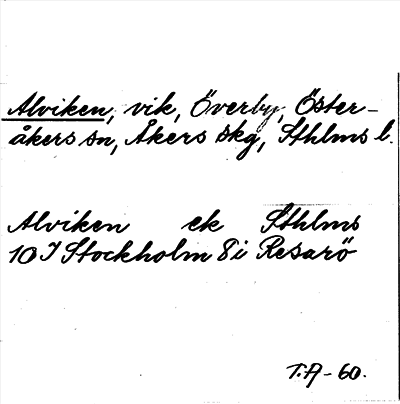 Alviken, vik, Överby, Öster-
åkers sn, Åkers skg, Sthlms l.
Alviken ek Sthlms
10 I Stockholm 8 i Resarö
T.A-60.